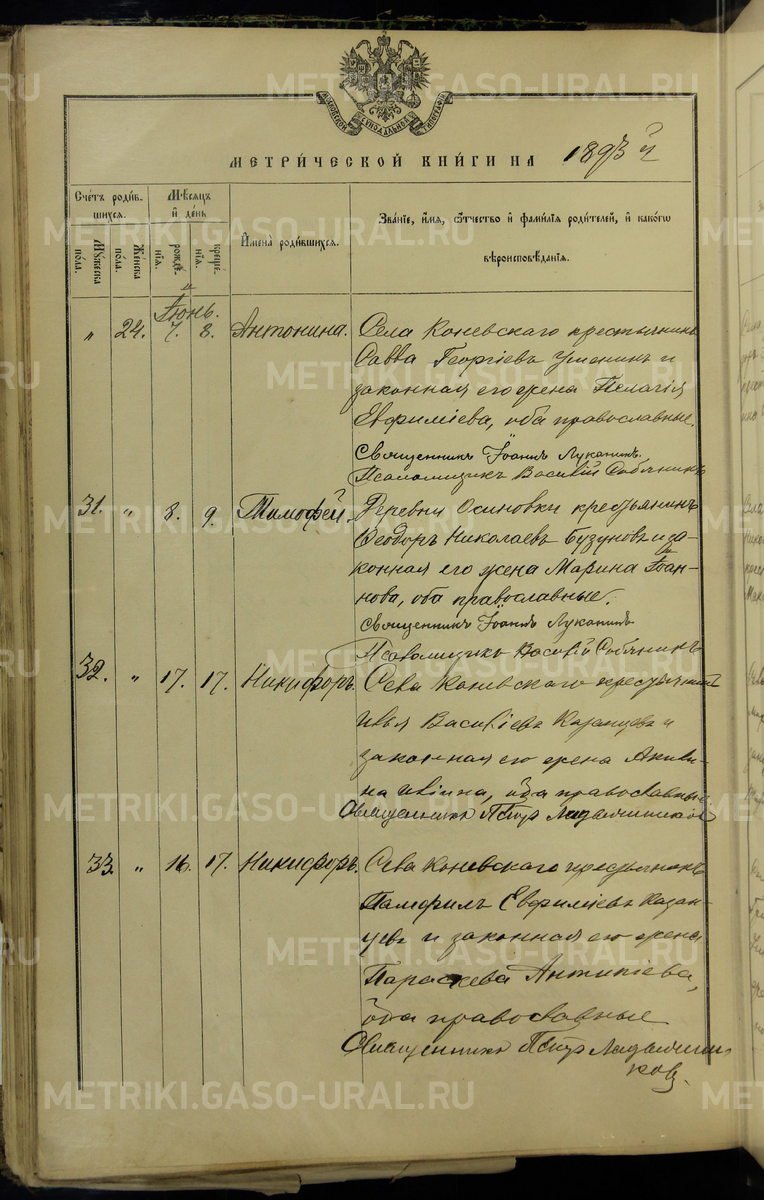 МОСКОВСКОЙ СѴНОДАЛЬНОЙ ТИПОГРАФІИ
МЕТРИ́ЧЕСКОЙ КНИ́ГИ НА 1893 й
Сче́тъ роди́вшихся.
Мꙋ́жеска по́ла.
Же́нска по́ла.
Мѣ́сяцъ и҆ де́нь
рожде́нїя.
креще́нїя.
И҆мена̀ роди́вшихся.
Зва́нїе, и҆́мя, ѻ҆́тчество и҆ фами́лїя роди́телей, и҆ како́гѡ
вѣроисповѣ́данїя.
Іюнь.
" 24. 7. 8. Антонина. Села Коневскаго крестьянинъ
Савва Георгіевъ и
законная его жена Пелагія
Евфиміева, оба православные.
Священникъ Іоаннъ Лукапинъ.
Псаломщикъ Василій
31. " 8. 9. Тимофей. Деревни Осиновки крестьянинъ
Ѳеодоръ Николаевъ Бузуновъ и за-
конная его жена Марина Іоан-
нова, оба православные.
Священникъ Іоаннъ Лукапинъ
Псаломщикъ Василій
32. " 17. 17. Никифоръ. Села Коневскаго крестьянинъ
Илья Василіевъ Казанцевъ и
законная его жена Акили-
на Иліина, оба православные
Священникъ Петръ
33. " 16. 17. Никифоръ. Села Коневскаго крестьянинъ
Памфилъ Евфиміевъ Казан-
цевъ и законная его жена
Параскева Антипіева,
оба православные
Священникъ Петръ
ковъ.
METRIKI.GASO-URAL.RU